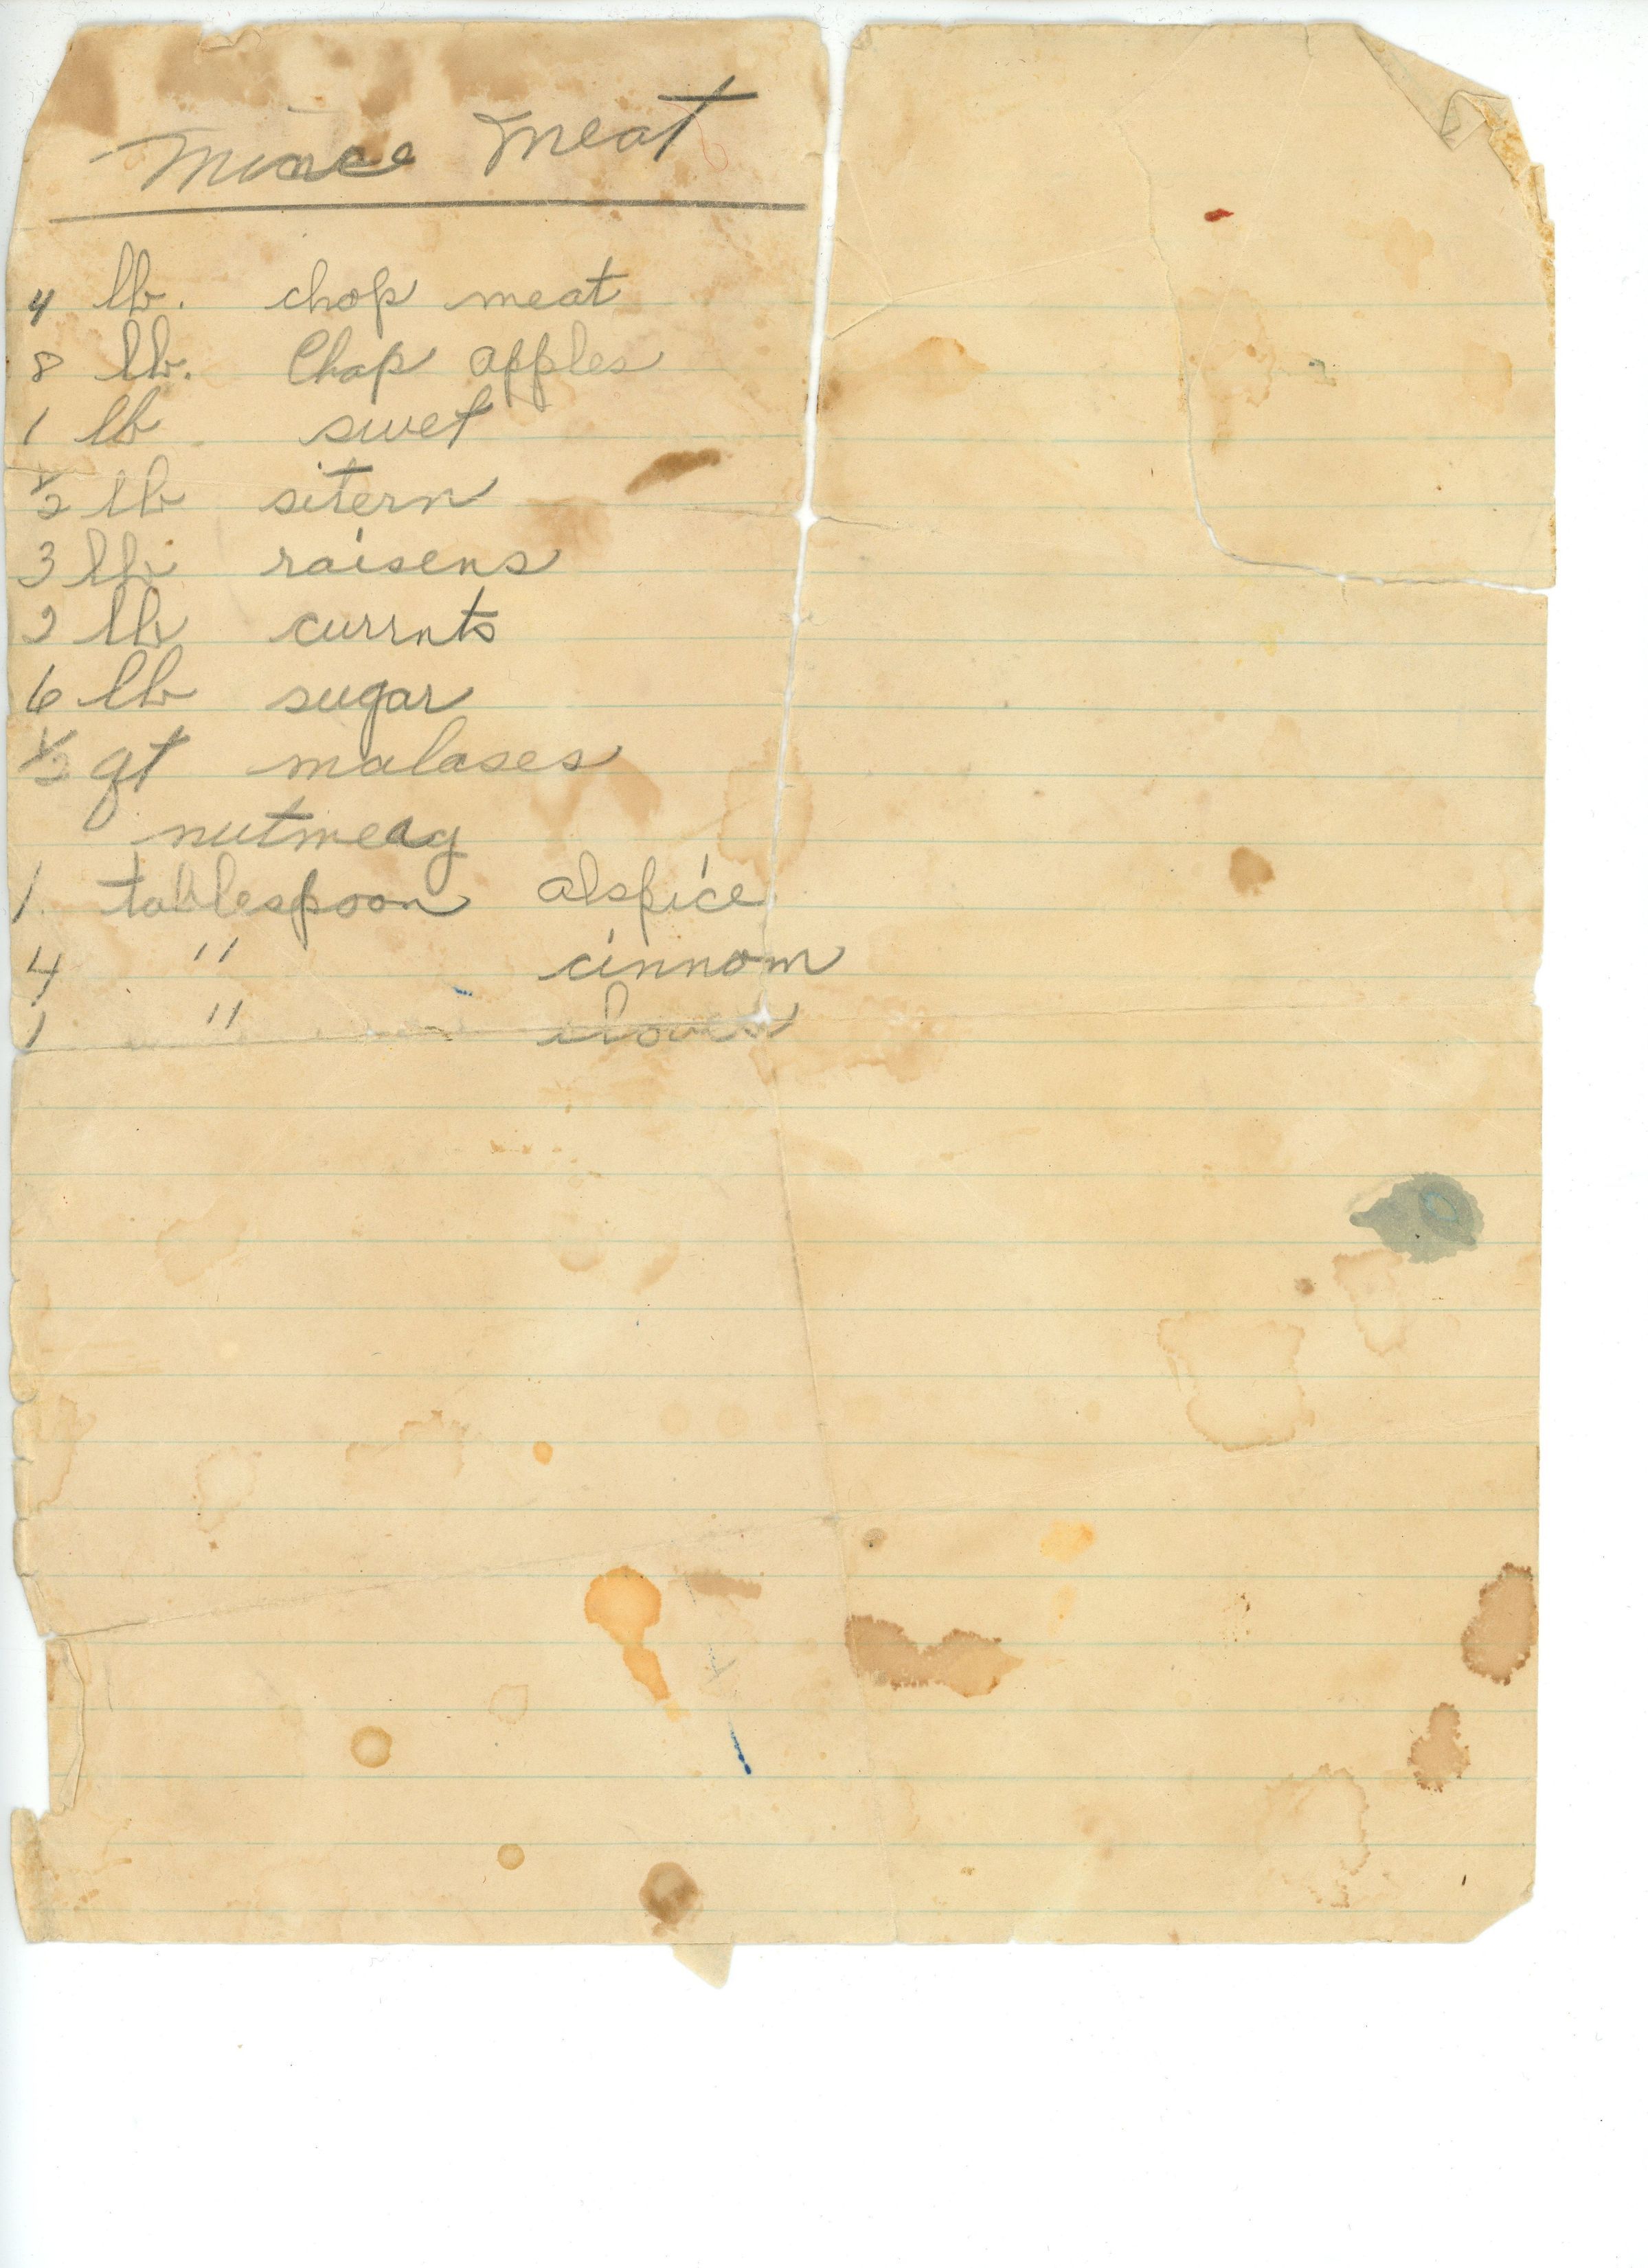 Mince Meat
4 lb. chop meat
8 lb. Chop apples
1 lb suet
½ lb sitern
3 lb raisens
2 lb currnts
6 lb sugar
½ qt malases
nutmeag
1. tablespoon alspice
4 " cinnom
1 " cloves